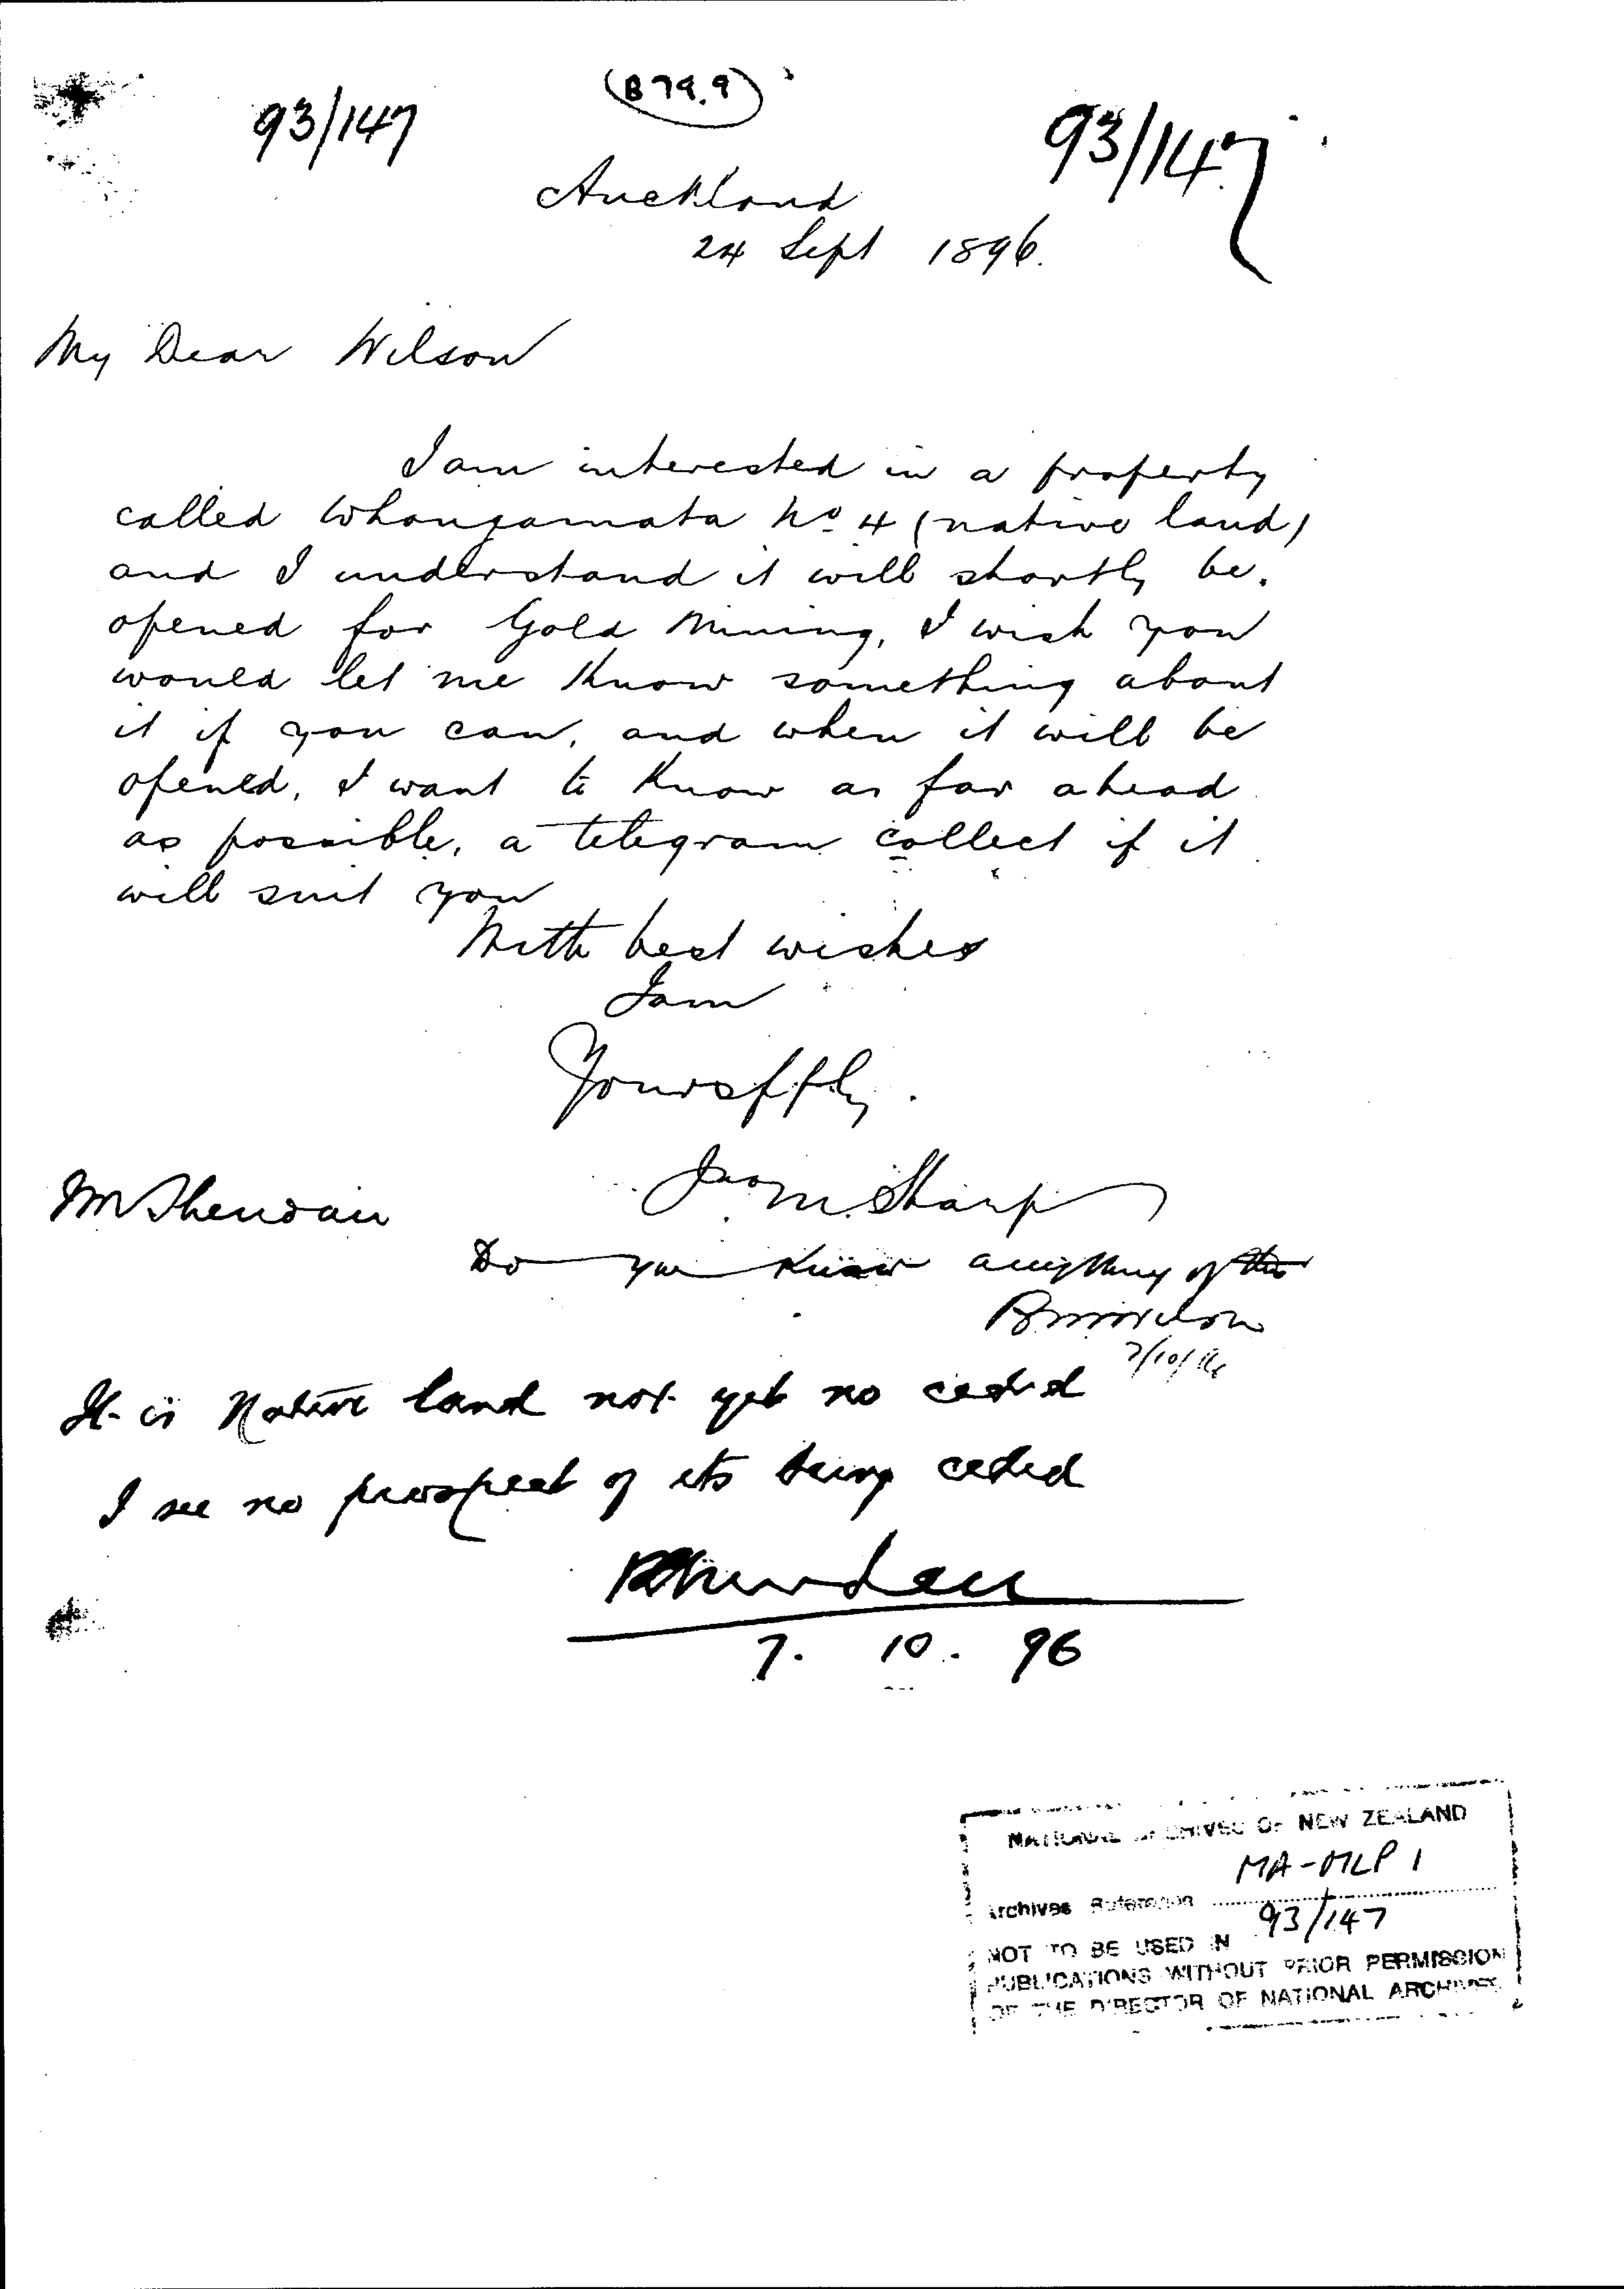 (B79.9)
93/147
93/147
Auckland
24 Sept 1896.
My Dear Wilson
I am interested in a property
called Whangamata No 4 (native land)
and I understand it will shortly be
opened for Gold Mining, I wish you
would let me know something about
it if you can, and when it will be
opened, I want to know as far ahead
as possible, a telegram collect if it
will suit you
With best wishes
I am
Yours ffly
Jno M. Sharp
Mr Sheridan
Do you know anything of this
7/10/96
It is Native land not yet no ceded
I see no prospect of its being ceded
7. 10. 96
NATIONAL ARCHIVES OF NEW ZEALAND
MA-MLP 1
Archives Reference
93/147
NOT TO BE USED IN
PUBLICATIONS WITHOUT PRIOR PERMISSION
OF THE DIRECTOR OF NATIONAL ARCHIVES